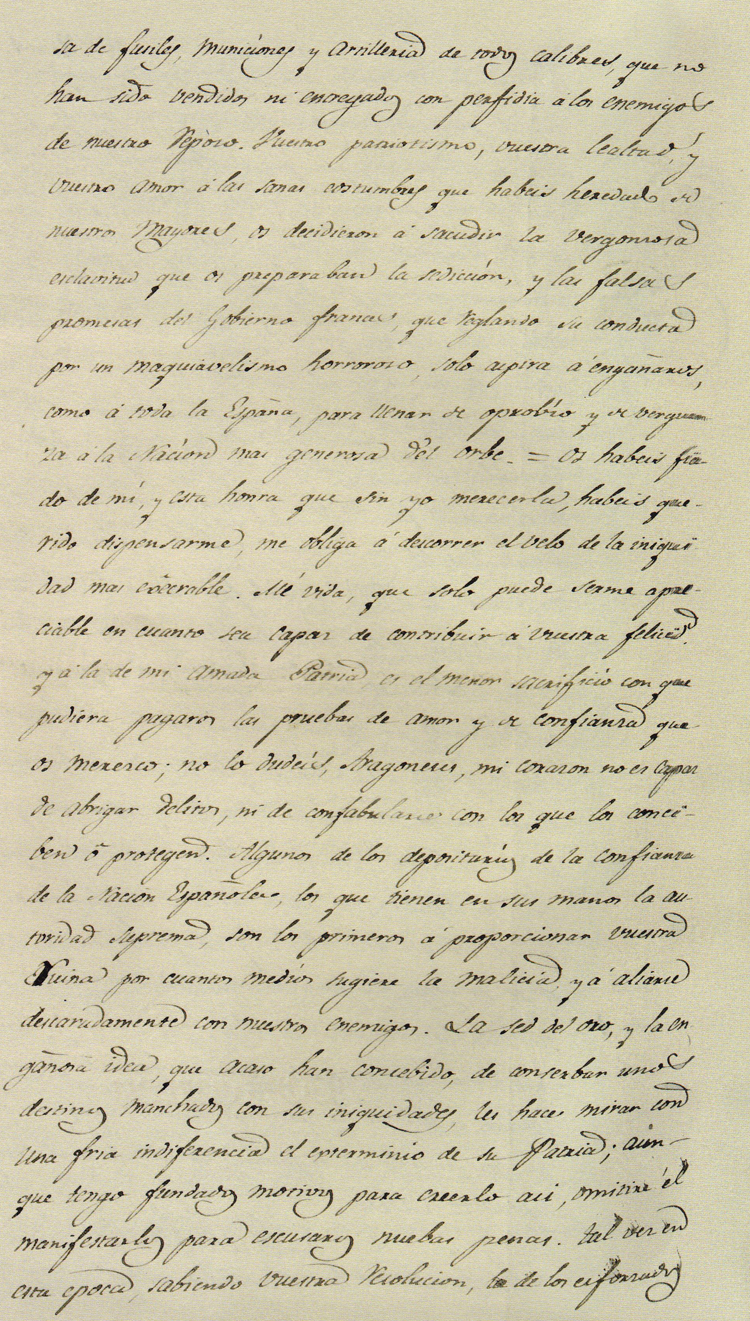 sa de fusiles, municiones y Artilleria de todos calibres, que no
han sido vendidos ni entregados con perfidia á los enemigos
de nuestro Reposo. Vuestro patriotismo, vuestra lealtad, y
vuestro amor á las sanas costumbres que habeis heredado de
nuestros Mayores, os decidieron á sacudir la vergonzosa
esclavitud que os preparaban la sedicción, y las falsas
promesas del Gobierno frances, que reglando su conducta
por un maquiavelismo horroroso, solo aspira á engañaros,
como á toda la España, para llenar de oprobio y de verguen
za á la Nación mas generosa del orbe. = Os habeis fia-
do de mi, y esta honra que sin yo merecerla, habeis que-
rido dispensarme, me obliga á descorrer el velo de la iniqui
dad mas execrable. Mi vida, que solo puede serme apre-
ciable en cuanto sea capaz de contribuir á vuestra felicidd.
y á la de mi amada Patria es el menor sacrificio con que
pudiera pagaros las pruebas de amor y de confianza que
os merezco; no lo dudeis, Aragoneses, mi corazon no es capaz
de abrigar delitos, ni de confabularse con los que los conci-
ben ó protegen. Algunos de los depositarios de la confianza
de la Nación Española, los que tienen en sus manos la au-
toridad suprema, son los primeros á proporcionar vuestra
Ruina por cuantos medios sugiere la malicia, y á aliarse
descaradamente con nuestros enemigos. La sed del oro, y la en
gañosa idea, que acaso han concebido, de conserbar unos
destinos manchados con sus iniquidades, les hace mirar con
una fria indiferencia el exterminio de su Patria; aun-
que tengo fundados motivos para creerlo asi, omitiré el
manifestarlos para escusaros nuebas penas. tal vez en
esta epoca, sabiendo vuestra resolucion, la de los esforzados